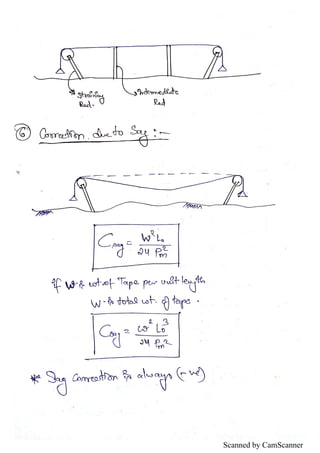 Straining Rod.
Intermediate Rod
⑥ Correction due to Sag :-
Csag = W²L₀ / 24 Pm²
if w is wt of Tape per unit length
W - is total wt. of tape.
Csag = w² L₀³ / 24 Pm²
* Sag Correction is always (-ve)
Scanned by CamScanner